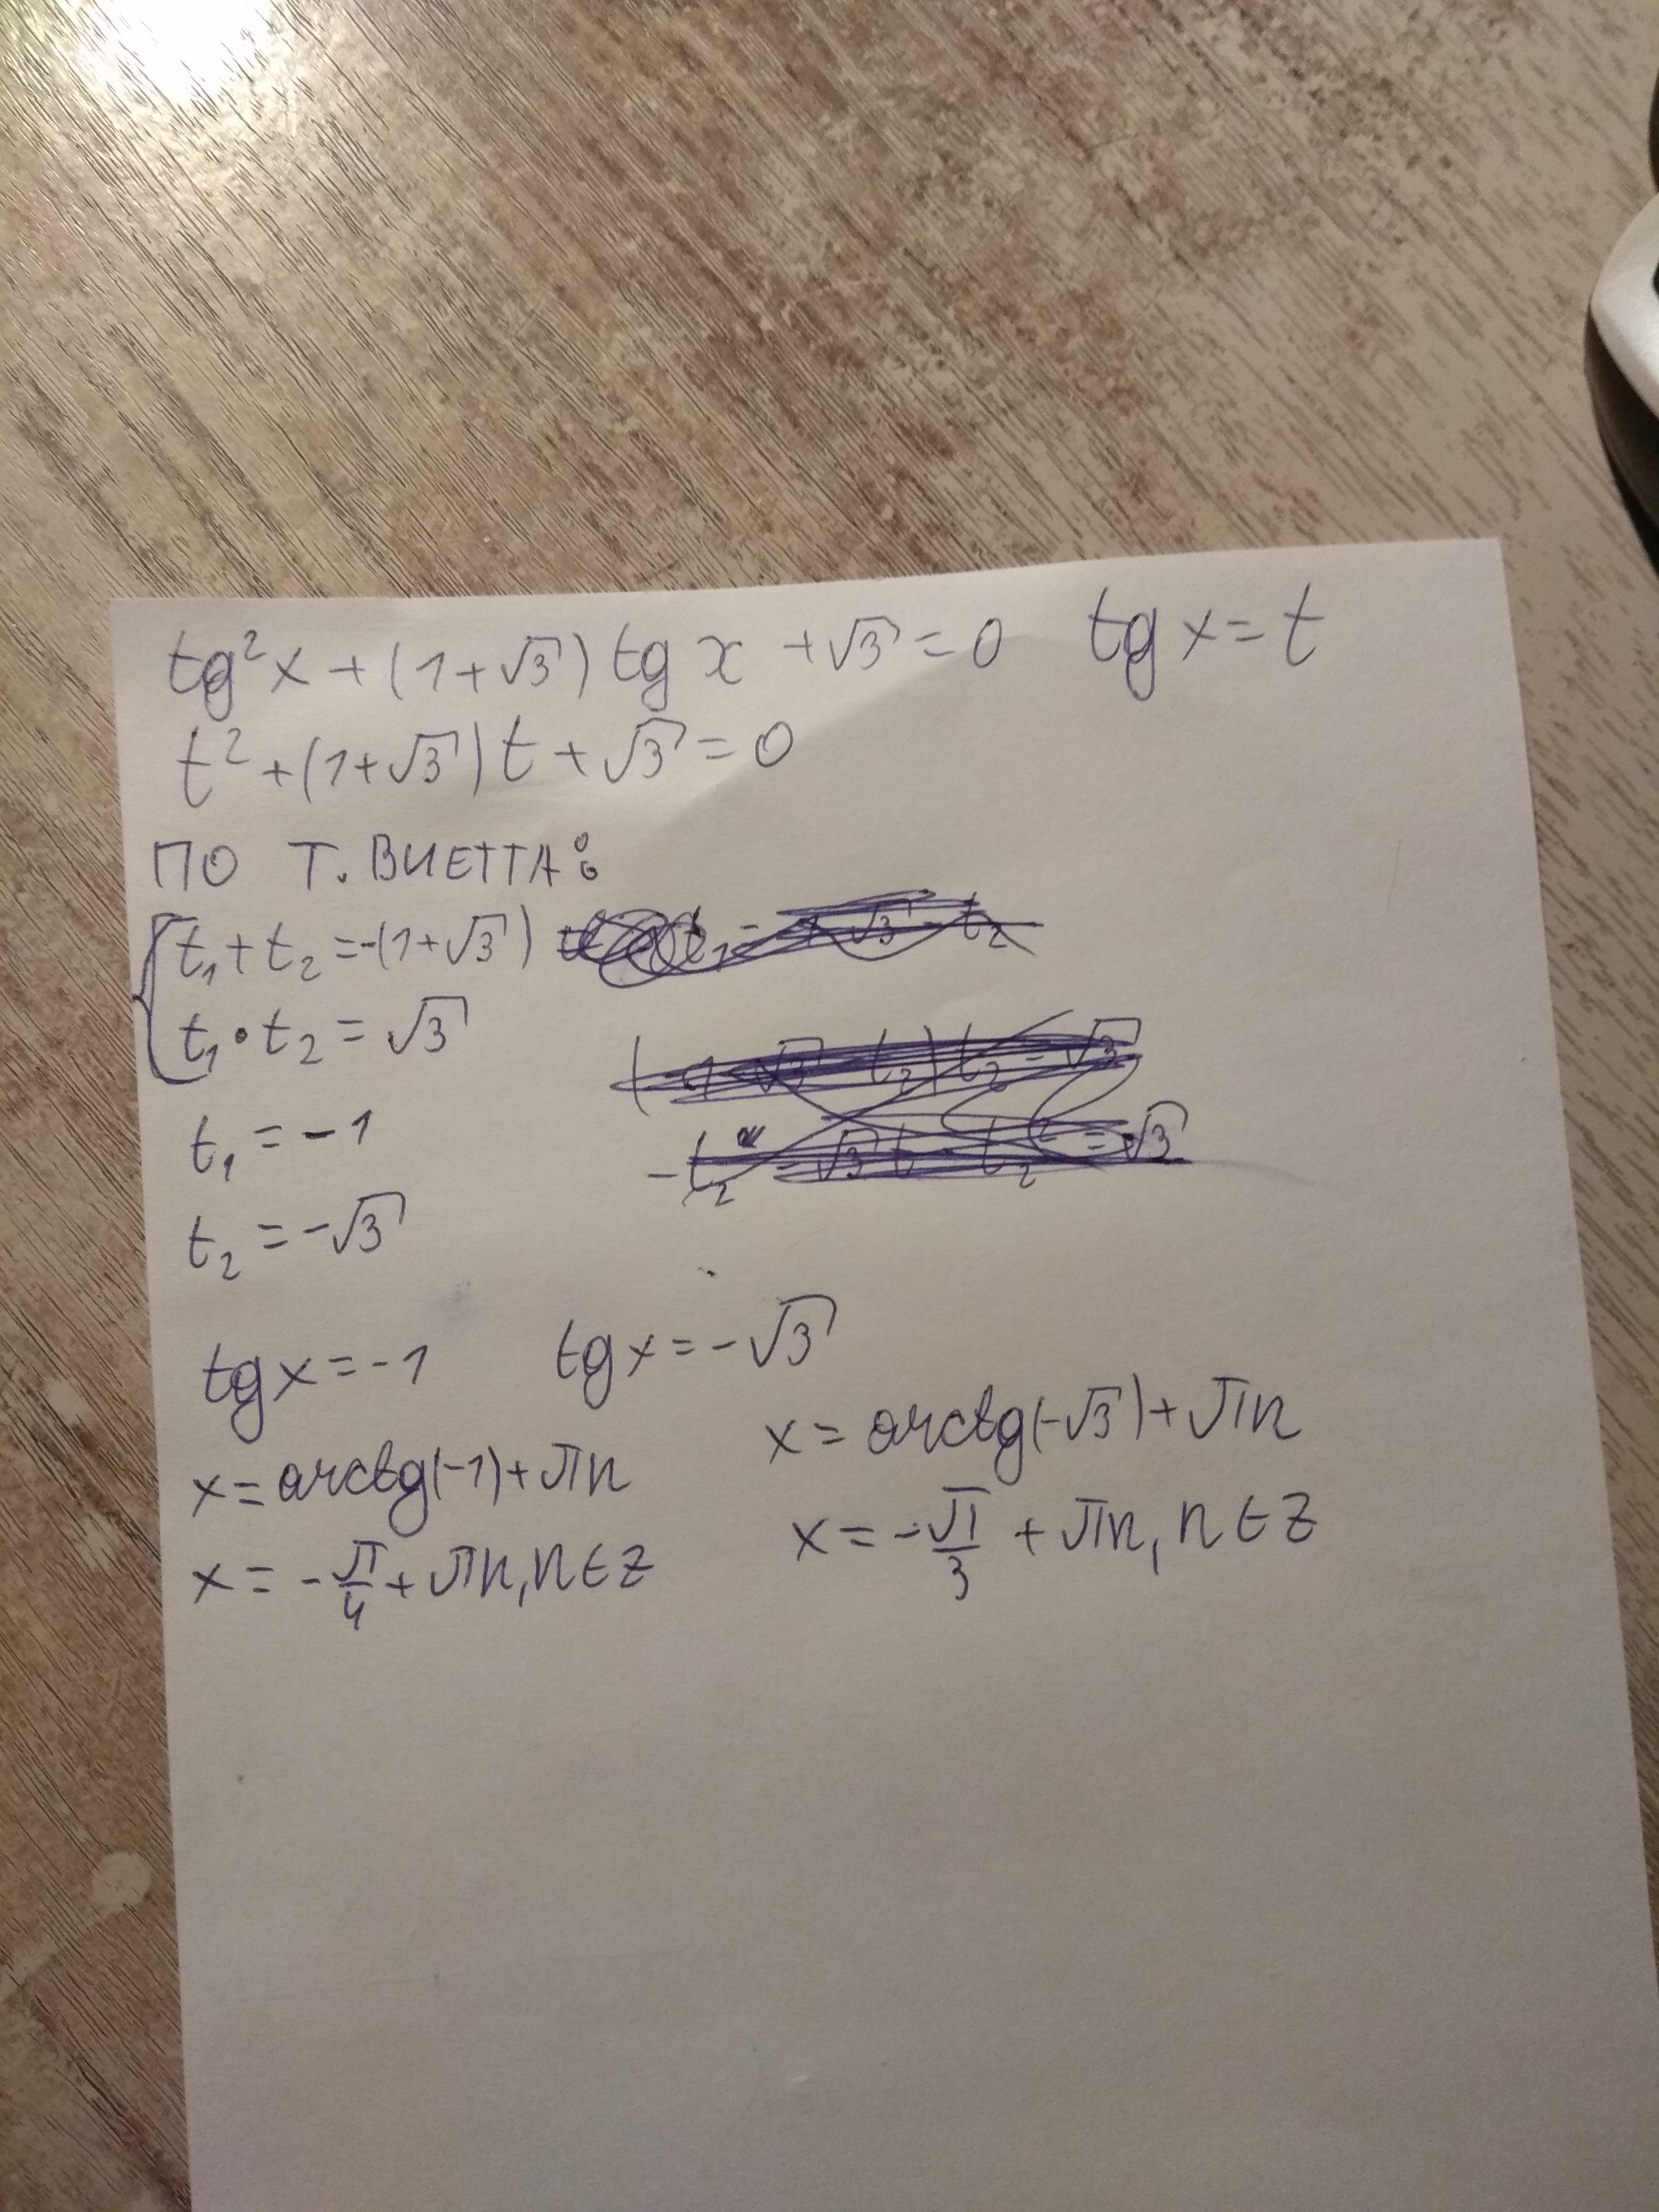 tg²x + (1+√3) tg x + √3 = 0 tg x = t
t² + (1+√3) t + √3 = 0
ПО Т. ВИЕТТА:
t₁ + t₂ = -(1+√3) t₁ = -1-√3-t₂
t₁ • t₂ = √3
(-1-√3-t₂) t₂ = √3
t₁ = -1
t₂ = -√3
tg x = -1 tg x = -√3
x = arctg(-1) + πn x = arctg(-√3) + πn
x = -π/4 + πn, n ∈ Z x = -π/3 + πn, n ∈ Z